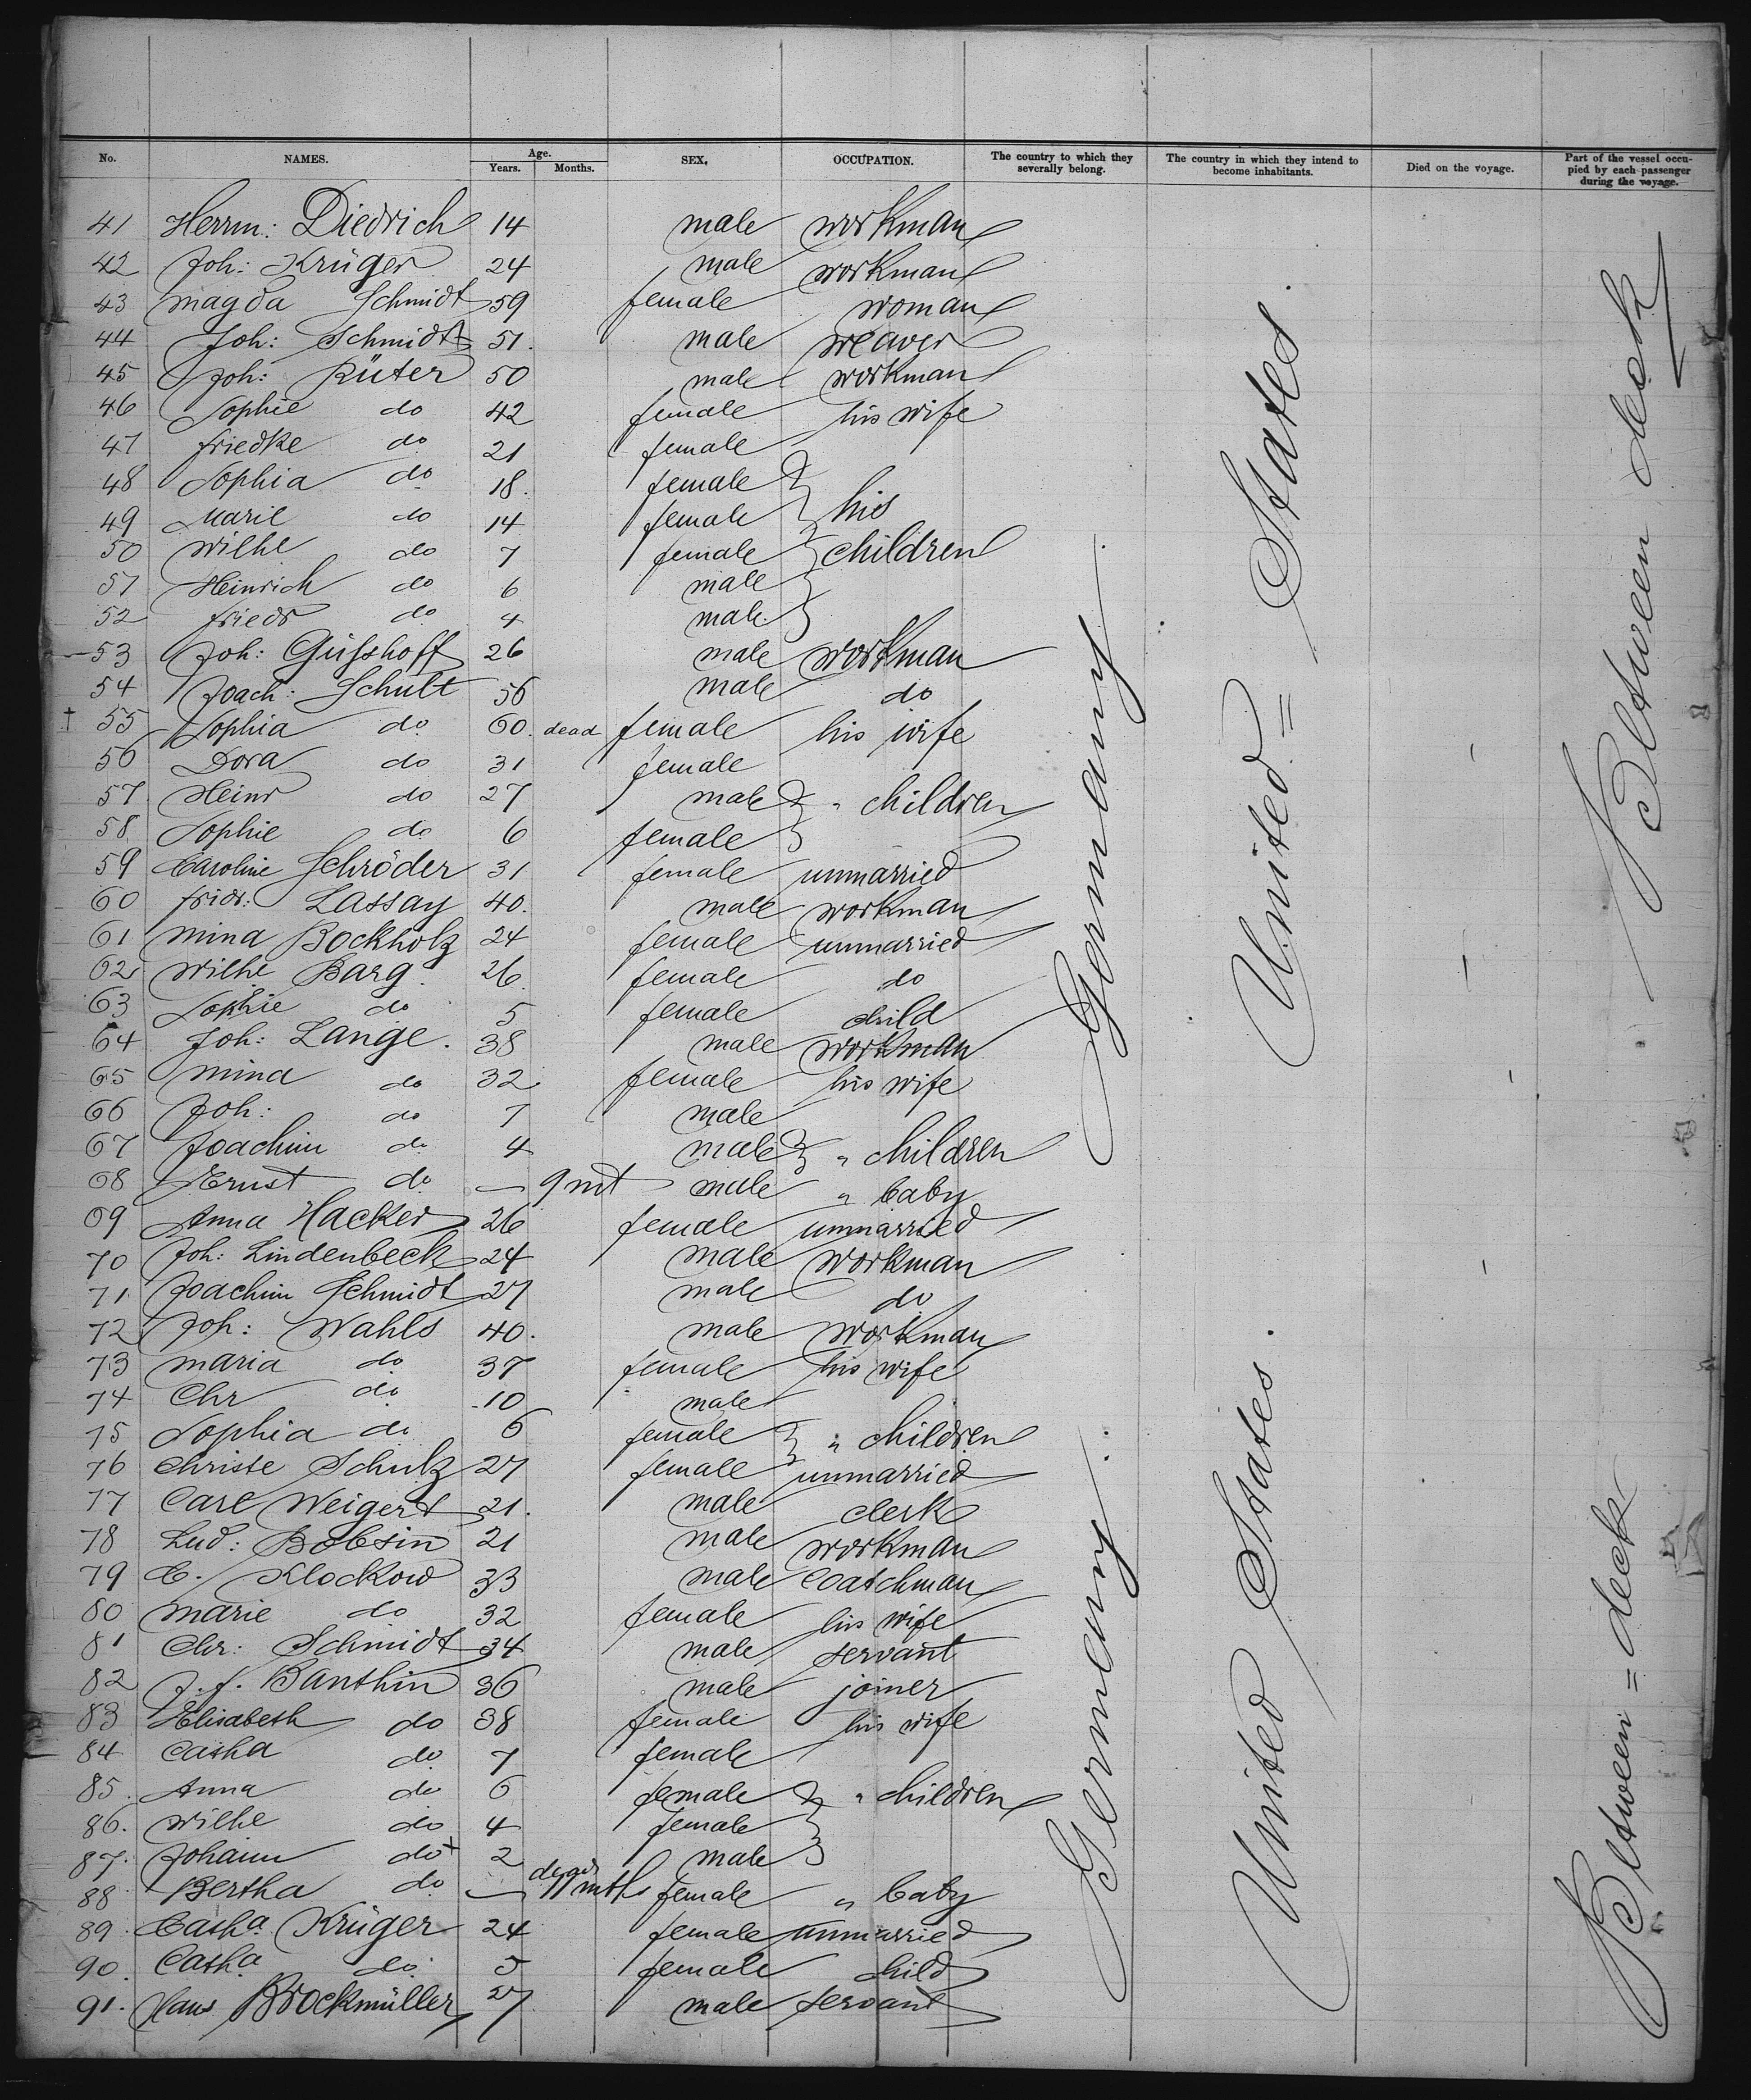 No. NAMES. Age. Years. Months. SEX. OCCUPATION. The country to which they severally belong. The country in which they intend to become inhabitants. Died on the voyage. Part of the vessel occupied by each passenger during the voyage.
41 Herrm: Diedrich 14 male workman
42 Joh: Krüger 24 male workman
43 Magda Schmidt 59 female woman
44 Joh: Schmidt 51. male weaver
45 Joh: Rüter 50 male workman
46 Sophie do 42 female his wife
47 Friedke do 21 female
48 Sophia do 18. female
49 Marie do 14 female his
50 Wilhe do 7 female children
51 Heinrich do 6 male
52 Friedr do 4 male
53 Joh: Gußhoff 26 male workman
54 Joach: Schult 56 male do
55 Sophia do 60. dead female his wife
56 Dora do 31 female
57 Heinr do 27 male " children
58 Sophie do 6 female
59 Caroline Schröder 31 female unmarried
60 Fridr: Lassay 40. male workman
61 Mina Bockholz 24 female unmarried
62 Wilhe Barg 26. female do
63 Sophie do 5 female child
64 Joh: Lange. 38 male workman
65 Mina do 32 female his wife
66 Joh: do 7 male
67 Joachim do 4 male " children
68 Ernst do — 9 mt male " baby
69 Anna Hacker 26 female unmarried
70 Joh: Lindenbeck 24 male workman
71 Joachim Schmidt 27 male do
72 Joh: Wahls 40. male workman
73 Maria do 37 female his wife
74 Chr do 10 male
75 Sophia do 6 female " children
76 Christe Schulz 27 female unmarried
77 Carl Weigert 21. male clerk
78 Lud: Bobsin 21 male workman
79 C. Klockow 33 male Coatchman
80 Marie do 32 female his wife
81 Chr: Schmidt 34 male servant
82 J. F. Banthin 36 male joiner
83 Elisabeth do 38 female his wife
84 Catha do 7 female
85. Anna do 6 female " children
86. Wilhe do 4 female
87. Johann do + 2 dead male
88 Bertha do — 11 mths female " baby
89. Catha Krüger 24 female unmarried
90. Catha do 5 female child
91. Hans Brockmüller 27 male servant
Germany
United = States.
Between deck
Germany
United States.
Between = deck